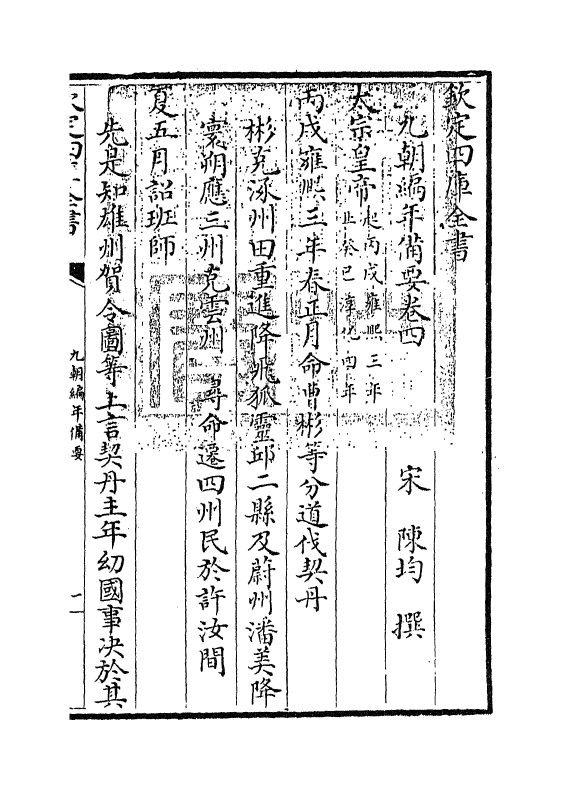 欽定四庫全書
九朝編年備要卷四
宋　陳均　撰
太宗皇帝起丙戌雍熙三年
止癸巳淳化四年
丙戌雍熙三年春正月命曹彬等分道伐契丹
彬克涿州田重進降飛狐靈邱二縣及蔚州潘美降
寰朔應三州克雲州　尋命遷四州民於許汝間
夏五月詔班師
先是知雄州賀令圖等上言契丹主年幼國事決於其
九朝編年備要
一